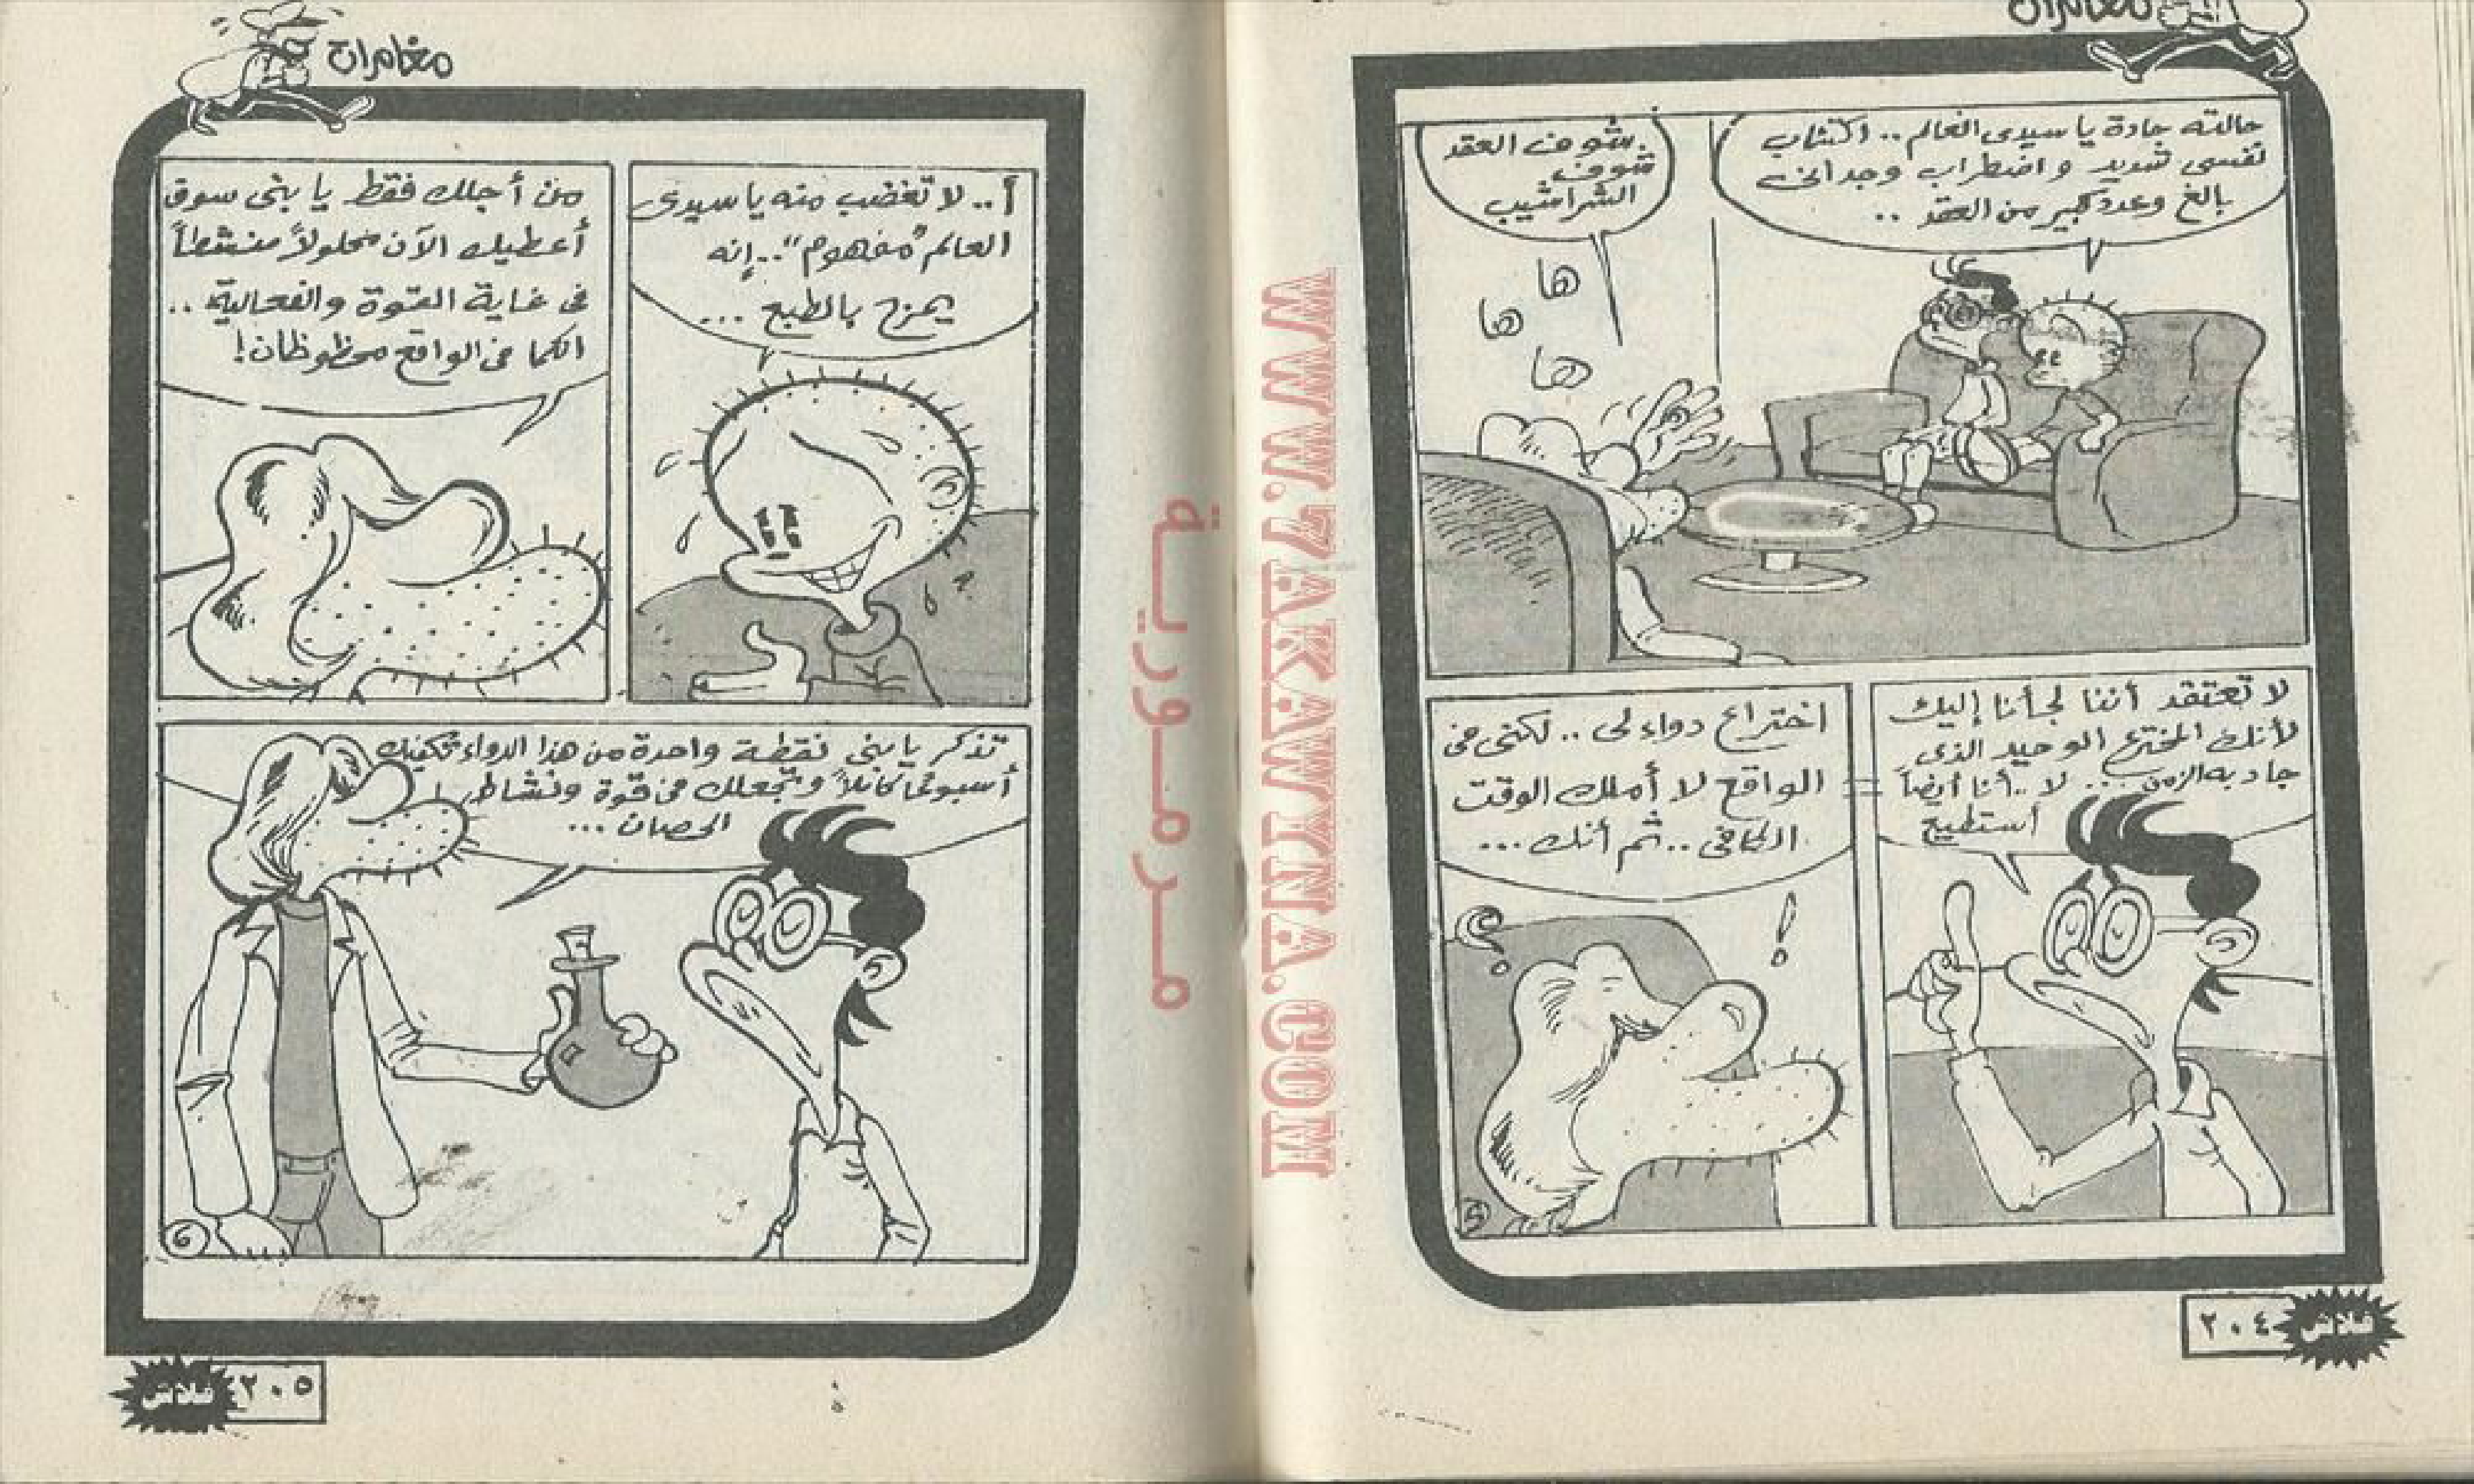 مغامرات
حالته جادة يا سيدى العالم .. اكتئاب
نفسى شديد و اضطراب وجدانى
بالغ وعدد كبير من العقد ..
شوف العقد
شوف
الشراشيب
ها
ها
ها
لا تعتقد أننا لجأنا إليك
لأنك المخترع الوحيد الذى
جاد به الزمن ... لا .. أنا أيضاً
أستطيع
اختراع دواء لى .. لكنى فى
الواقع لا أملك الوقت
الكافى .. ثم أنك ...
!
5
٢٠٤
فلاش
مغامرات
أ .. لا تغضب منه يا سيدى
العالم "مفهوم" .. إنه
يمزح بالطبع ...
من أجلك فقط يا بنى سوف
أعطيك الآن محلولاً منشطاً
فى غاية القوة والفعالية ..
انكما فى الواقع محظوظان !
تذكر يا بنى نقطة واحدة من هذا الدواء تكفيك
أسبوعاً كاملاً وتجعلك فى قوة ونشاط
الحصان ...
6
٢٠٥
فلاش
مرمورية
WWW.7AKAWITNA.COM